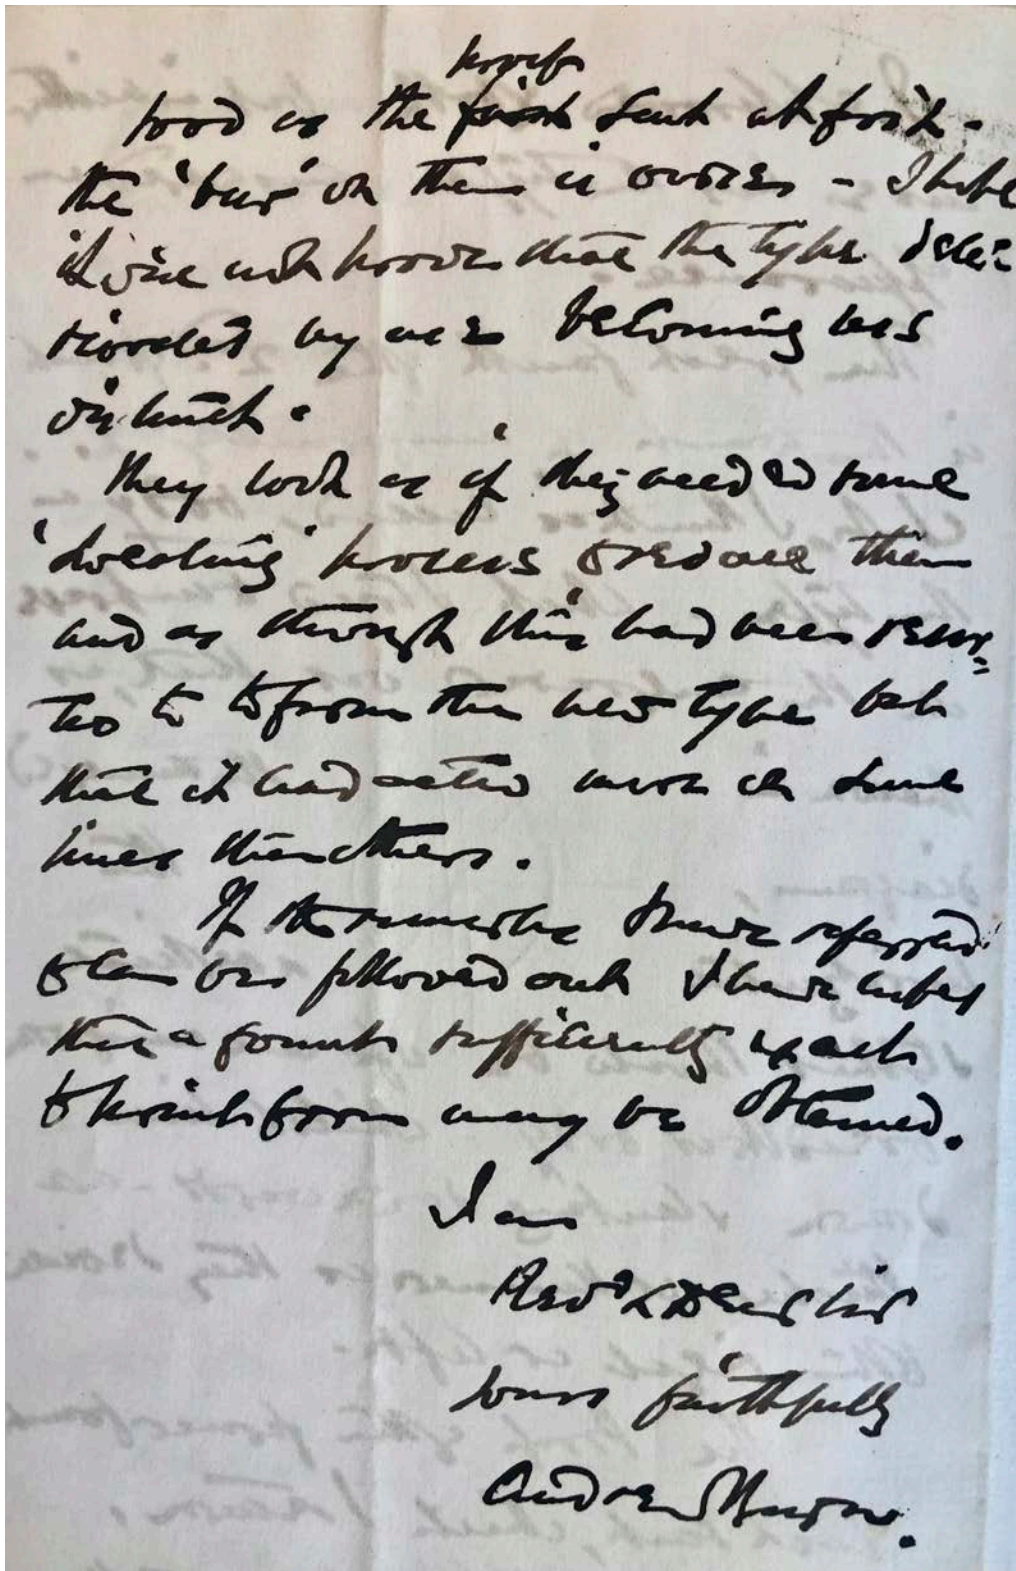 proofs
good as the first sent at first -
the 'burr' on them is ourses - I hope
it will not prove that the type dete-
riorated by use becoming less
distinct.
They look as if they needed some
'sweating' process to reduce them
and as though this had been resor-
ted to to from the new type but
that it had acted more on some
lines than others.
If the remarks I have referred
to can be followed out I have hopes
that a fount sufficiently exact
to print from may be obtained.
I am
Revd & Dear Sir
Yours faithfully
Andrew